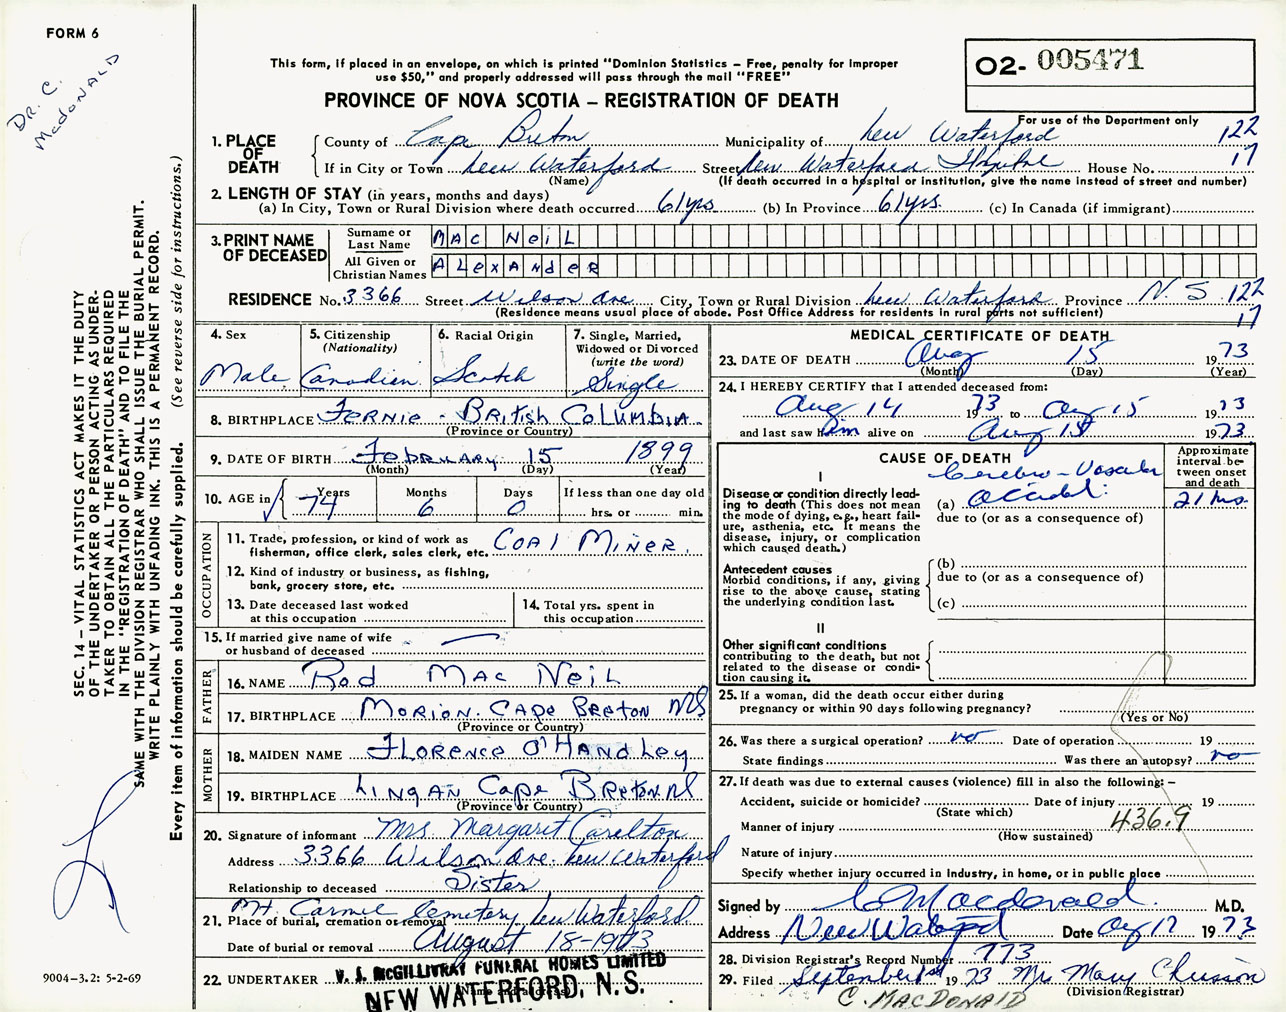 FORM 6
DR. C.
MacDONALD
This form, if placed in an envelope, on which is printed "Dominion Statistics – Free, penalty for improper
use $50," and properly addressed will pass through the mail "FREE"
O2- 005471
PROVINCE OF NOVA SCOTIA – REGISTRATION OF DEATH
For use of the Department only
1. PLACE OF DEATH County of Cape Breton Municipality of New Waterford 122
If in City or Town New Waterford Street New Waterford House No. 17
(Name) (If death occurred in a hospital or institution, give the name instead of street and number)
2. LENGTH OF STAY (in years, months and days)
(a) In City, Town or Rural Division where death occurred 61yrs (b) In Province 61yrs. (c) In Canada (if immigrant)
3. PRINT NAME OF DECEASED Surname or Last Name MAC NEIL
All Given or Christian Names ALEXANDER
RESIDENCE No. 3366 Street Wilson Ave City, Town or Rural Division New Waterford Province N.S 122
(Residence means usual place of abode. Post Office Address for residents in rural parts not sufficient) 17
4. Sex Male
5. Citizenship (Nationality) Canadian
6. Racial Origin Scotch
7. Single, Married, Widowed or Divorced (write the word) Single
8. BIRTHPLACE FERNIE - BRITISH COLUMBIA
(Province or Country)
9. DATE OF BIRTH FEBRUARY 15 1899
(Month) (Day) (Year)
10. AGE in Years 74 Months 6 Days 0 If less than one day old
hrs. or min.
OCCUPATION
11. Trade, profession, or kind of work as
fisherman, office clerk, sales clerk, etc. COAL MINER.
12. Kind of industry or business, as fishing,
bank, grocery store, etc.
13. Date deceased last worked
at this occupation
14. Total yrs. spent in
this occupation
15. If married give name of wife
or husband of deceased
FATHER
16. NAME Rod MAC NEIL
17. BIRTHPLACE MORION. CAPE BRETON NS
(Province or Country)
MOTHER
18. MAIDEN NAME FLORENCE O'HANDLEY
19. BIRTHPLACE LINGAN CAPE BRETON
(Province or Country)
20. Signature of informant Mrs. Margaret Carelton
Address 3366 Wilson Ave. New Waterford
Relationship to deceased Sister
21. Place of burial, cremation or removal Mt. Carmel Cemetery New Waterford
Date of burial or removal August 18-1973
22. UNDERTAKER V. S. McGILLIVRAY FUNERAL HOMES LIMITED
NEW WATERFORD, N.S.
MEDICAL CERTIFICATE OF DEATH
23. DATE OF DEATH Aug 15 1973
(Month) (Day) (Year)
24. I HEREBY CERTIFY that I attended deceased from:
Aug 14 1973 to Aug 15 1973
and last saw him alive on Aug 15 1973
CAUSE OF DEATH
Approximate interval between onset and death
I
Disease or condition directly leading
to death (This does not mean
the mode of dying, e.g., heart failure,
asthenia, etc. It means the
disease, injury, or complication
which caused death.)
Cerebro-Vascular
(a) 21 hrs.
due to (or as a consequence of)
Antecedent causes
Morbid conditions, if any, giving
rise to the above cause, stating
the underlying condition last.
(b)
due to (or as a consequence of)
(c)
II
Other significant conditions
contributing to the death, but not
related to the disease or condition
causing it.
25. If a woman, did the death occur either during
pregnancy or within 90 days following pregnancy?
(Yes or No)
26. Was there a surgical operation? no Date of operation 19
State findings Was there an autopsy? no
27. If death was due to external causes (violence) fill in also the following: –
Accident, suicide or homicide? Date of injury 19
(State which)
Manner of injury 436.9
(How sustained)
Nature of injury
Specify whether injury occurred in industry, in home, or in public place
Signed by C Macdonald. M.D.
Address Date Aug 17 1973
28. Division Registrar's Record Number 773
29. Filed September 1st 1973 Mrs Mary
(Division Registrar)
C. MACDONALD
SEC. 14 – VITAL STATISTICS ACT MAKES IT THE DUTY
OF THE UNDERTAKER OR PERSON ACTING AS UNDER-
TAKER TO OBTAIN ALL THE PARTICULARS REQUIRED
IN THE "REGISTRATION OF DEATH" AND TO FILE THE
SAME WITH THE DIVISION REGISTRAR WHO SHALL ISSUE THE BURIAL PERMIT.
WRITE PLAINLY WITH UNFADING INK. THIS IS A PERMANENT RECORD.
Every item of information should be carefully supplied. (See reverse side for instructions.)
9004–3.2: 5-2-69